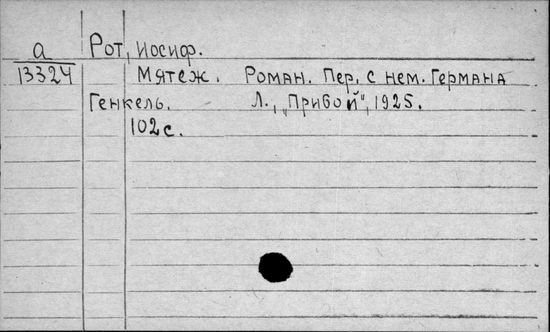 а Рот, Иосиф.
13324 Мятеж. Роман. Пер. с нем. Германа
Генкель. Л., „Прибой", 1925.
102 с.